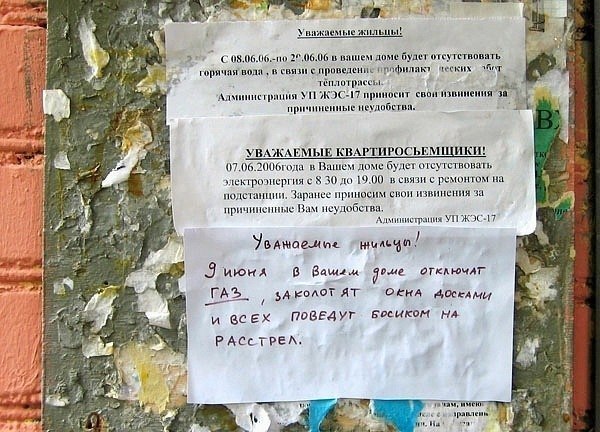 Уважаемые жильцы!
С 08.06.06.-по 20.06.06 в вашем доме будет отсутствовать
горячая вода , в связи с проведение профилактических работ
теплотрассы.
Администрация УП ЖЭС-17 приносит свои извинения за
причиненные неудобства.
УВАЖАЕМЫЕ КВАРТИРОСЬЕМЩИКИ!
07.06.2006года в Вашем доме будет отсутствовать
электроэнергия с 8 30 до 19.00 в связи с ремонтом на
подстанции. Заранее приносим свои извинения за
причиненные Вам неудобства.
Администрация УП ЖЭС-17
Уважаемые жильцы!
9 июня в Вашем доме отключат
ГАЗ , заколотят окна досками
и всех поведут босиком на
расстрел.